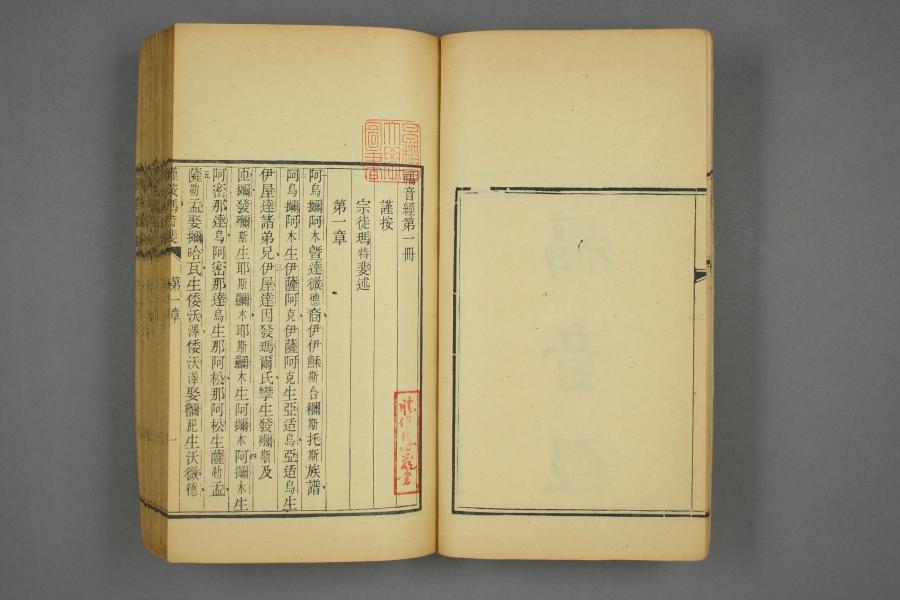 福音經第一冊
謹按
宗徒瑪特斐述
第一章
阿烏攊阿木暨達微德裔伊伊穌斯合穪斯托斯族譜
阿烏攊阿木生伊薩阿克伊薩阿克生亞适烏亞适烏生
伊屋達諸弟兄伊屋達因發瑪爾氏孿生發穪斯及
匝攊發穪斯生耶斯穪木耶斯穪木生阿攊木阿攊木生
阿密那達烏阿密那達烏生那阿松那阿松生薩勒孟
薩勒孟娶攊哈瓦生倭沃澤倭沃澤娶穪肥生沃微德
謹按瑪特斐 第一章
福音經